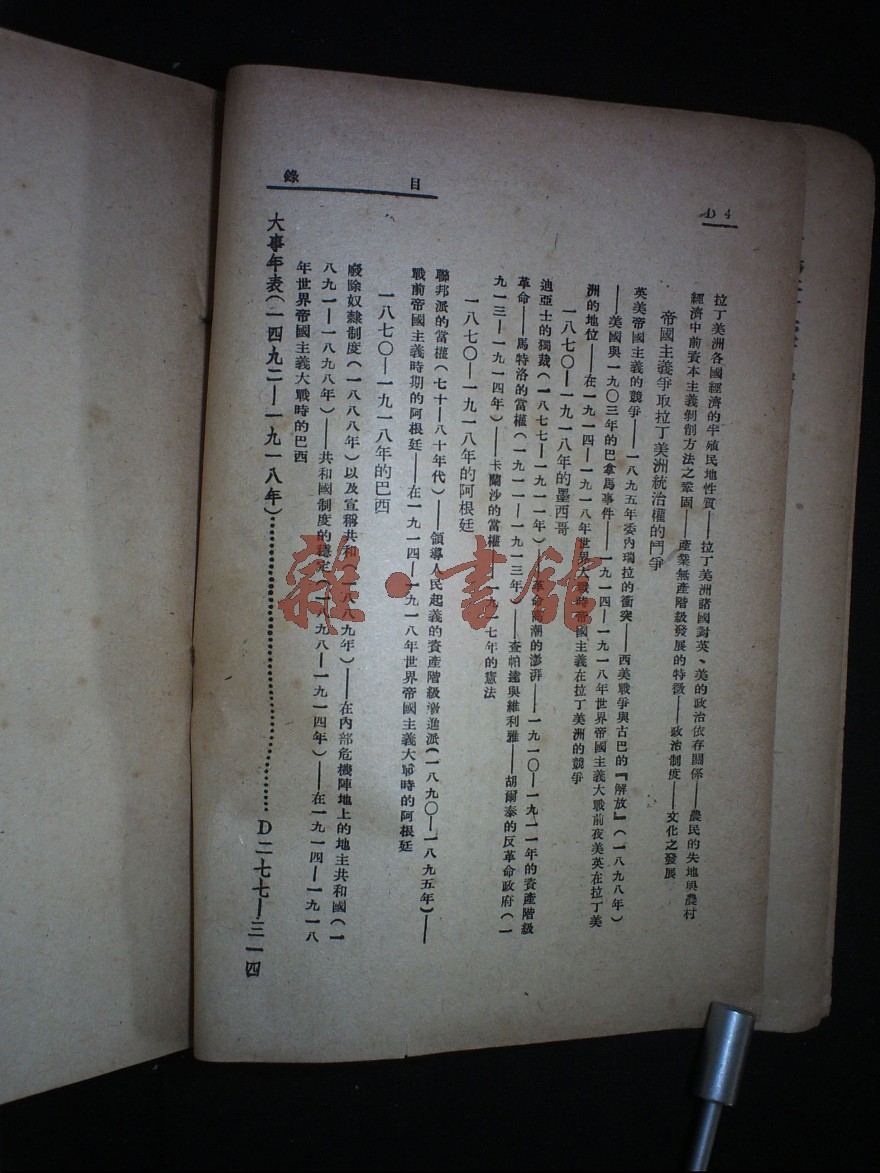 D 4
目錄
拉丁美洲各國經濟的半殖民地性質——拉丁美洲諸國對英、美的政治依存關係——農民的失地與農村
經濟中前資本主義剝削方法之鞏固——產業無產階級發展的特徵——政治制度——文化之發展
帝國主義爭取拉丁美洲統治權的鬥爭
英美帝國主義的競爭——一八九五年委內瑞拉的衝突——西美戰爭與古巴的『解放』(一八九八年)
——美國與一九〇三年的巴拿馬事件——一九一四—一九一八年世界帝國主義大戰前夜美英在拉丁美
洲的地位——在一九一四—一九一八年世界大戰時帝國主義在拉丁美洲的競爭
一八七〇—一九一八年的墨西哥
迪亞士的獨裁(一八七七—一九一一年)——革命高潮的澎湃——一九一〇—一九一一年的資產階級
革命——馬特洛的當權(一九一一—一九一三年)——查帕達與維利雅——胡爾泰的反革命政府(一
九一三—一九一四年)——卡蘭沙的當權——一九一七年的憲法
一八七〇—一九一八年的阿根廷
聯邦派的當權(七十—八十年代)——領導人民起義的資產階級激進派(一八九〇—一八九五年)——
戰前帝國主義時期的阿根廷——在一九一四—一九一八年世界帝國主義大戰時的阿根廷
一八七〇—一九一八年的巴西
廢除奴隸制度(一八八八年)以及宣稱共和(一八八九年)——在內部危機陣地上的地主共和國(一
八九一—一八九八年)——共和國制度的穩定(一八九八—一九一四年)——在一九一四—一九一八
年世界帝國主義大戰時的巴西
大事年表(一四九二—一九一八年)……………………D二七七—三一四
雜·書館